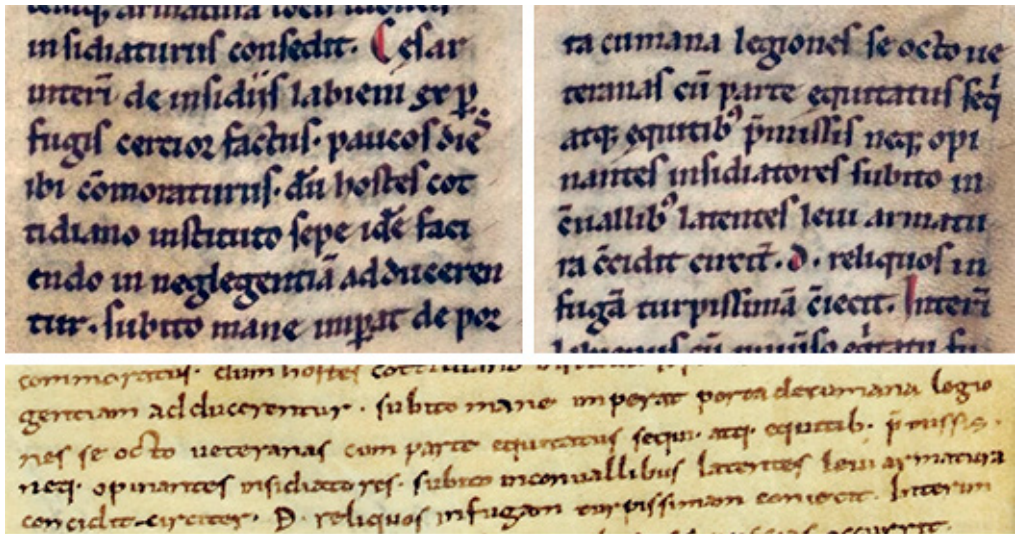 insidiaturus consedit. Cesar
interī de insidiis labieni ex p̱
fugis certior factus. paucos dies
ibi cōmoraturus. dū hostes cot
tidiano instituto sepe idē faci
endo in neglegentiā adduceren
tur. subito mane imp̱at de por
ta cumana legiones se octo ue
teranas cū parte equitatus seq̇
atq; equitib⁹ p̄missis neq; opi
nantes insidiatores subito in
cūuallib⁹ latentes leui armatu
ra c̄cidit circit̄. D. reliquos in
fugā turpissimā c̄iecit. Interī
gentiam adducerentur. subito mane imperat porta decumana legio
nes se octo ueteranas cum parte equitatus sequi. atq. equitib. p̄missis.
neq. opinantes insidiatores. subito inconuallibus latentes leui armatura
concidit circiter. D. reliquos infugam turpissimam coniecit. Interim